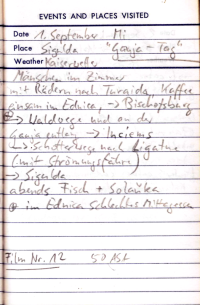 EVENTS AND PLACES VISITED
Date 1. September Mi
Place Sigulda "Gauja-Tag"
Weather Kaiserwetter
Mäuschen im Zimmer
mit Rädern nach Turaida, Kaffee
einsam in Ednica, → Bischofsburg
→ Waldwege und an der
Gauja entlang → Inciems
→ Schotterwege nach Ligatne
(mit Strömungsfähre)
→ Sigulda
abends Fisch + Soljanka
in Ednica Schlechtes Mittagessen
Film Nr. 12 50 ASA